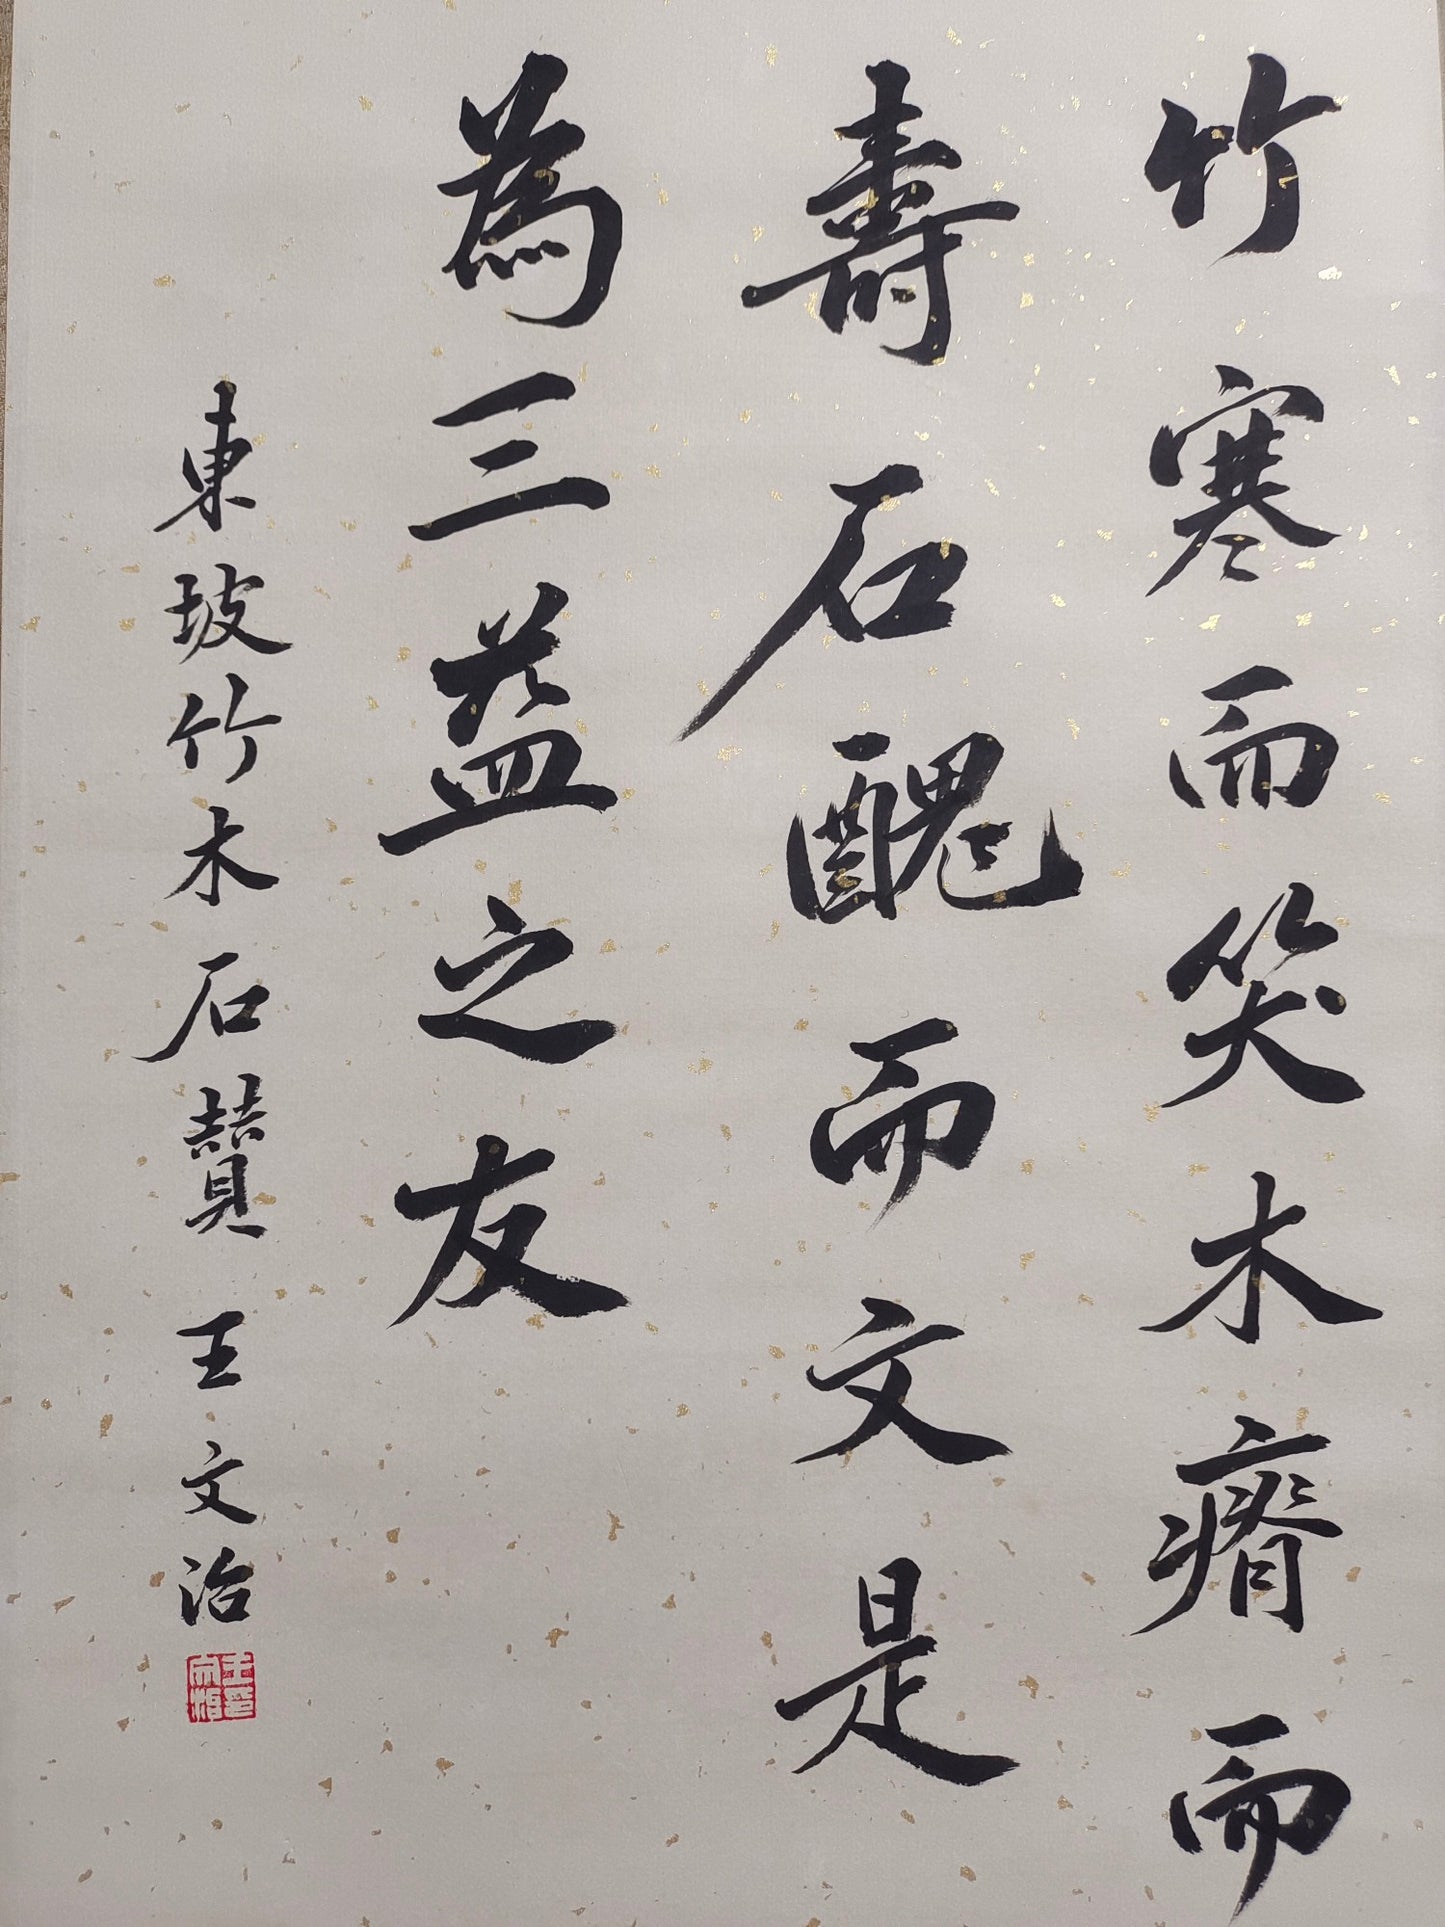 竹寒而笑木瘠而
壽石醜而文是
為三益之友
東坡竹木石贊 王文治
王文治印